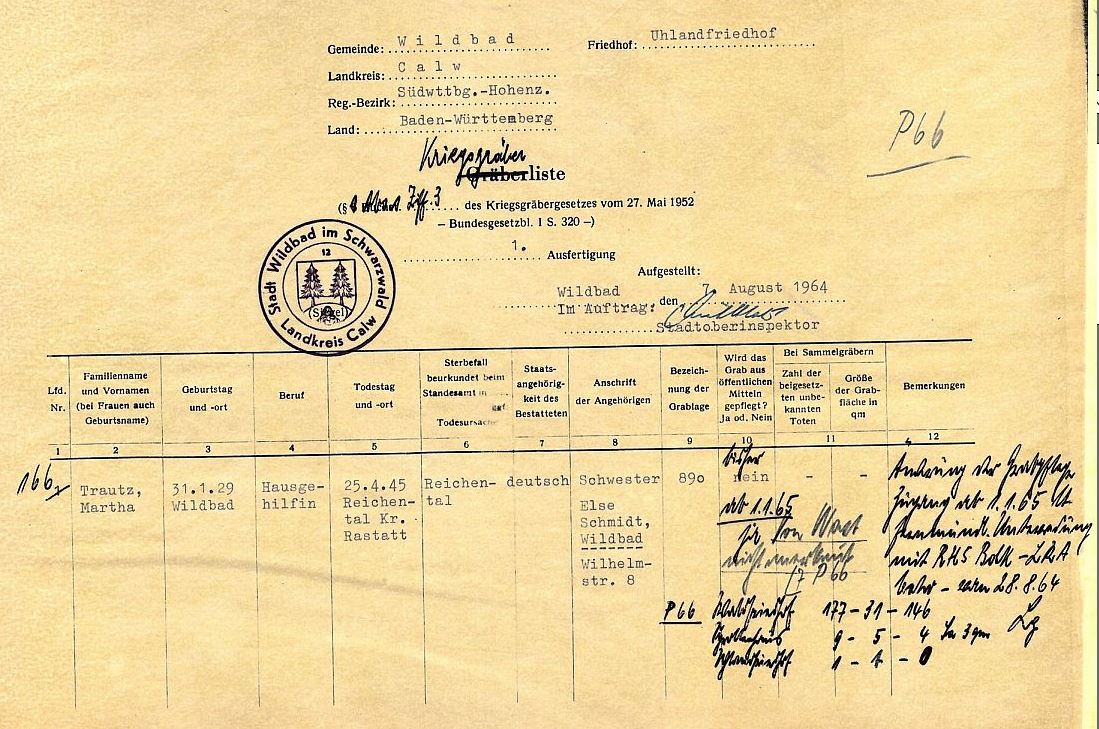 Gemeinde: Wildbad
Friedhof: Uhlandfriedhof
Landkreis: Calw
Reg.-Bezirk: Südwttbg.-Hohenz.
Land: Baden-Württemberg
P66
Kriegsgräber
Gräberliste
(§ Ziff. 3 des Kriegsgräbergesetzes vom 27. Mai 1952
– Bundesgesetzbl. I S. 320 –)
1. Ausfertigung
Stadt Wildbad im Schwarzwald
12
(Siegel)
Landkreis Calw
Aufgestellt:
Wildbad den 7. August 1964
Im Auftrag:
Stadtoberinspektor
Lfd. Nr.
Familienname und Vornamen (bei Frauen auch Geburtsname)
Geburtstag und -ort
Beruf
Todestag und -ort
Sterbefall beurkundet beim Standesamt in
Todesursache
Staatsangehörigkeit des Bestatteten
Anschrift der Angehörigen
Bezeichnung der Grablage
Wird das Grab aus öffentlichen Mitteln gepflegt? Ja od. Nein
Bei Sammelgräbern
Zahl der beigesetzten unbekannten Toten
Größe der Grabfläche in qm
Bemerkungen
1 2 3 4 5 6 7 8 9 10 11 12
166
Trautz,
Martha
31.1.29
Wildbad
Hausge-
hilfin
25.4.45
Reichen-
tal Kr.
Rastatt
Reichen-
tal
deutsch
Schwester
Else
Schmidt,
Wildbad
Wilhelm-
str. 8
89o
bisher
nein
- -
ab 1.1.65
ja
nicht anerkannt
P 66
Änderung der Grabpflege
Zugang ab 1.1.65 lt
fernmündl. Unterredung
mit
vom 28.8.64
P66 Waldfriedhof 177-31-146
9-5-4
1-1-0